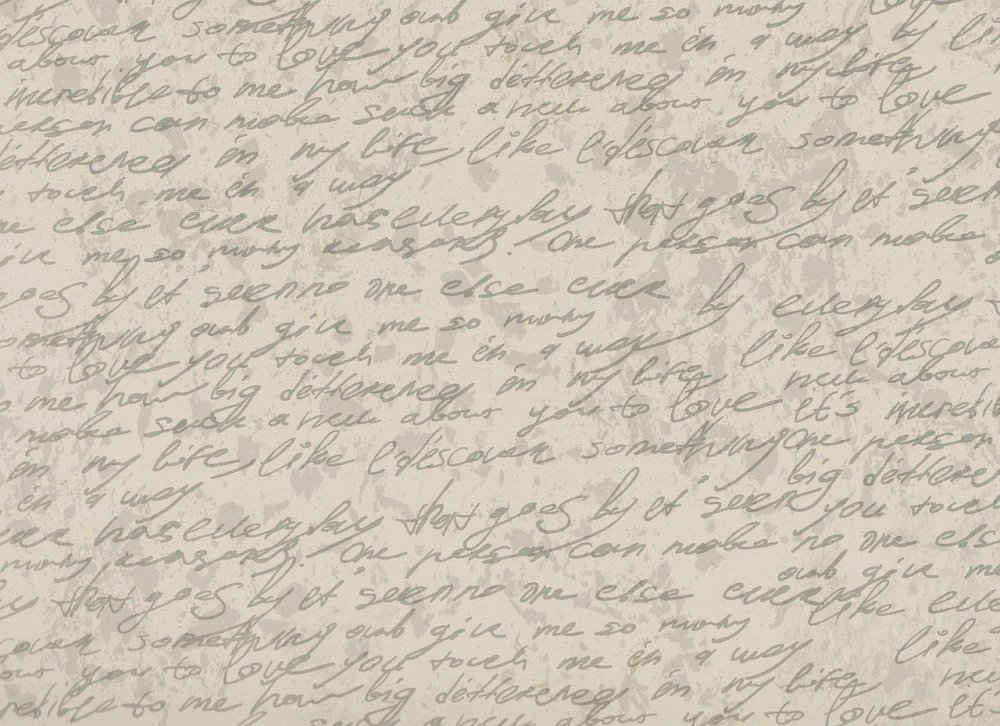 discover something and give me so many love
about you to love you touch me in a way by li
incredible to me how big difference in my life
person can make such a new about you to love
difference in my life, like I discover something
touch me in a way
one else ever has every day that goes by it seem
give me, so many reasons. One person can make
goes by it seem no one else ever by every day
something and give me so many
to love you touch me in a way like I discover
to me how big difference in my life new about
make such a new about you to love it's incredib
in my life, like I discover something One person
in a way big differe
ever has every day that goes by it seem you touch
many reasons. One person can make no one else
and give me
that goes by it seem no one else ever like eve
discover something and give me so many
about you to love you touch me in a way like
incredible to me how big difference in my life new
about you to love it's